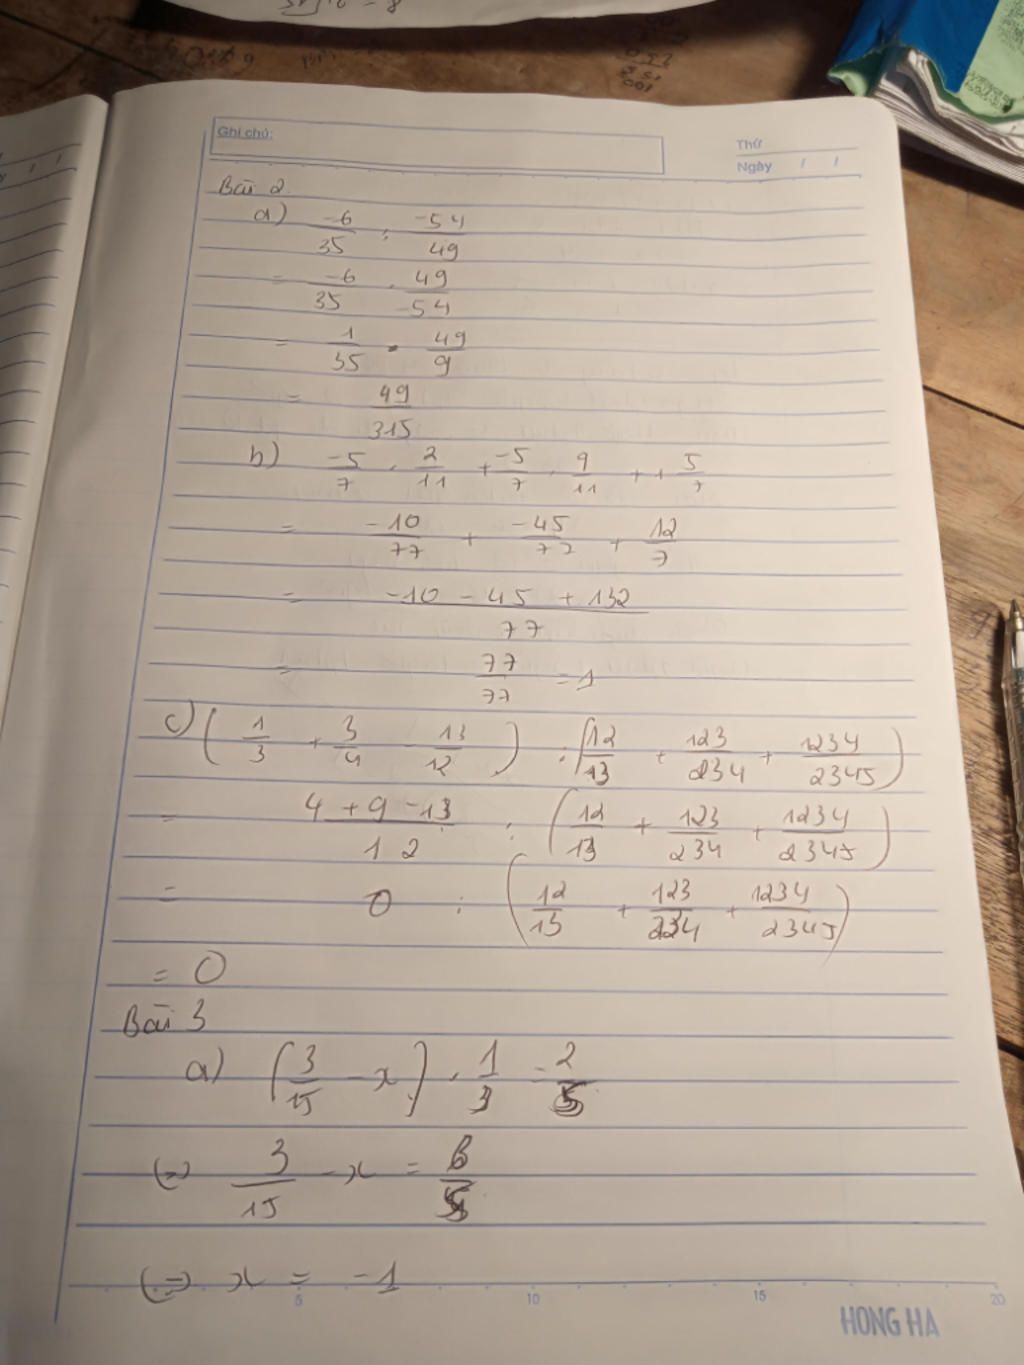 Ghi chú:
Thứ
Ngày / /
Bài 2
a) -6/35 : -54/49
= -6/35 . 49/-54
= 1/35 . 49/9
= 49/315
b) -5/7 . 2/11 + -5/7 . 9/11 + 1 5/7
= -10/77 + -45/77 + 12/7
= -10 - 45 + 132/77
= 77/77 = 1
c) (1/3 + 3/4 - 13/12) : (12/13 + 123/234 + 1234/2345)
= 4 + 9 - 13/12 : (12/13 + 123/234 + 1234/2345)
= 0 : (12/13 + 123/234 + 1234/2345)
= 0
Bài 3
a) (3/15 - x) . 1/3 = 2/5
(=) 3/15 - x = 6/5
(=) x = -1
5 10 15 20
HONG HA